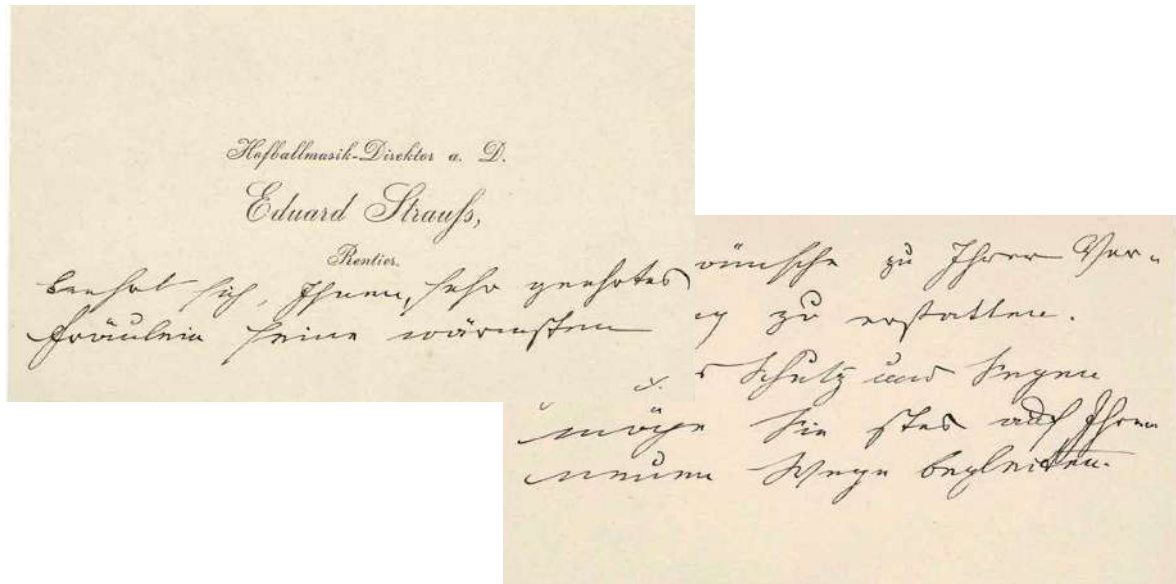 Hofballmusik-Direktor a. D.
Eduard Strauß,
Rentier.
beehrt sich, Ihnen, sehr geehrtes
Fräulein seine wärmsten
wünsche zu Ihrer Ver-
g zu erstatten.
s Schutz und Segen
möge Sie stes auf Ihrem
neuen Wege begleiten.